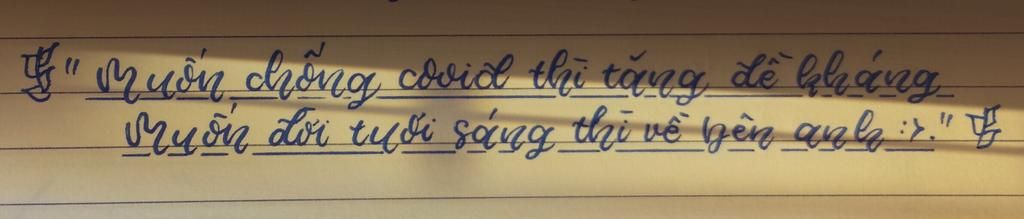 "Muốn chống covid thì tăng đề kháng
Muốn đời tươi sáng thì về bên anh :>."